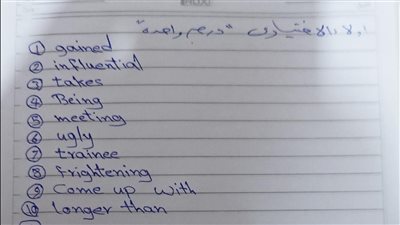 اولا : الاختيارى "درجه واحدة"
① gained
② influential
③ takes
④ Being
⑤ meeting
⑥ ugly
⑦ trainee
⑧ frightening
⑨ Come up with
⑩ longer than